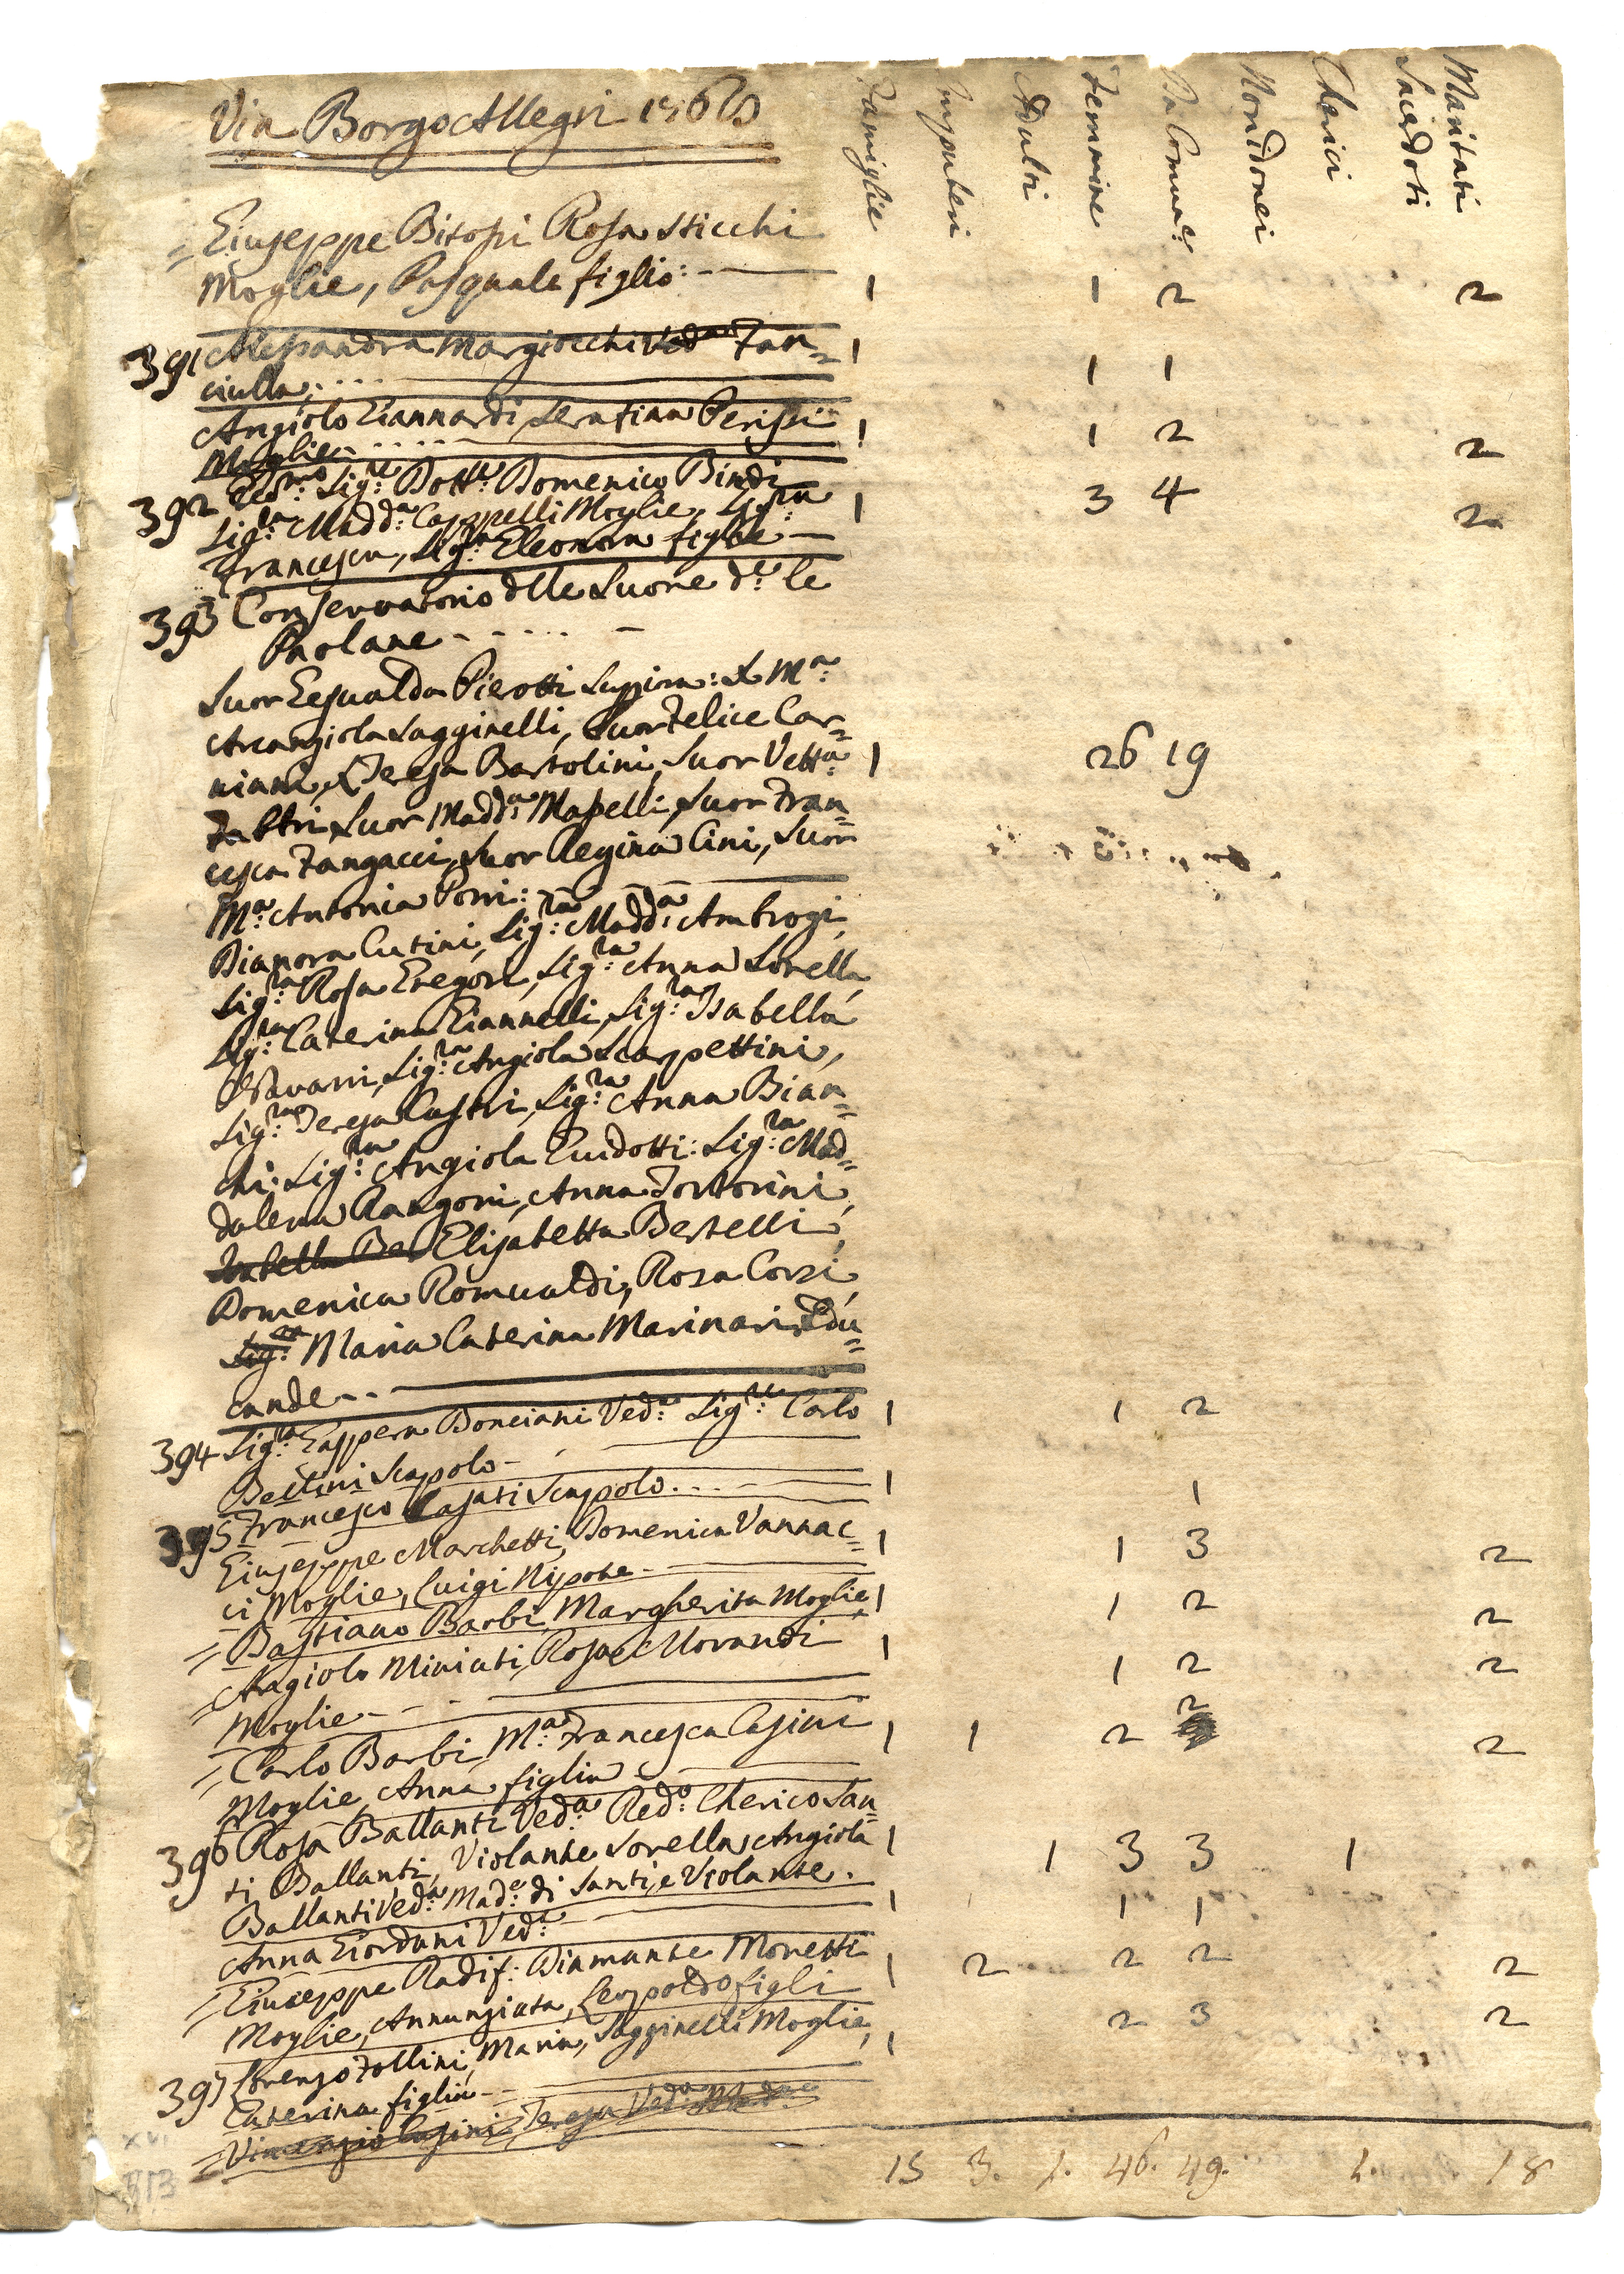 Via Borgo Allegri
Famiglie Impuberi Adulti Femmine Da Comun:e Non Idonei Cherici Sacerdoti Maritati
= Giuseppe Bisopi Rosa Sticchi
Moglie, Pasquale figlio: - — 1 1 2 2
391 Alessandra Margiocchi Ved.a Fan= 1
ciulla . . . . 1 1
Angiolo Giannardi, Serafina 1 1 2
Moglie . . . . 2
392 Sig:re Dott:e Domenico Bindi 1 3 4
Sig:ra Madd:a Cappelli Moglie, Sig:ra 2
Francesca, Sig:ra Eleonora figlie —
393 Conservatorio delle Suore d:e le
Paolane - - . . . . —
Suor Pierotti
Arcangiola Sagginelli, Suor Felice Car=
niani, Teresa Bartolini, Suor Vett:a 1 26 19
Fabbri, Suor Madd:a Maselli, Suor Fran=
cesca Fangacci, Suor Regina Cini, Suor
M:a Antonia Porri: —
Dianora Cutini, Sig:ra Madd:a Ambrogi,
Sig:ra Rosa Gregori, Sig:ra Anna Sorella,
Sig:ra Caterina Giannelli, Sig:ra Isabella
Sig:ra Angiola Scarpettini,
Sig:ra Teresa Castri, Sig:ra Anna Bian=
chi: Sig:ra Angiola Guidotti: Sig:ra Mad=
dalena Rangoni, Anna Tortorini,
Isabella Ber Elisabetta Bertelli,
Domenica Romualdi, Rosa Corsi,
Sig:ra Maria Caterina Marinari Edu=
cande - -
394 Sig:ra Gappera Bonciani Ved:a Sig:re Carlo 1 1 2
Bettini Scapolo -
395 Francesco Casati Scapolo . . . - 1 1
Giuseppe Marchetti, Domenica Vannac= 1 1 3 2
ci Moglie, Luigi Nipote -
= Bastiano Barbi, Margherita Moglie 1 1 2 2
= Angiolo Miniati, Rosa Morandi 1 1 2 2
Moglie - -
= Carlo Barbi, M:a Francesca Casini 1 1 2 2 2
Moglie, Anna figlia
396 Rosa Ballanti Ved:a Red:o Cherico San=
ti Ballanti, Violante Sorella, Angiola 1 1 3 3 1
Ballanti Ved:a Mad:e di Santi, e Violante.
Anna Giordani Ved:a 1 1 1
= Giuseppe Radif: Diamante Moretti 1 2 2 2 2
Moglie, Annunziata, Leopoldo figli
397 Lorenzo Follini, Maria, Sagginelli Moglie, 1 2 3 2
Caterina figlia - -
= Vincenzio Casini, Teresa Ved:a
15 3. 1. 46. 49. 1. 18